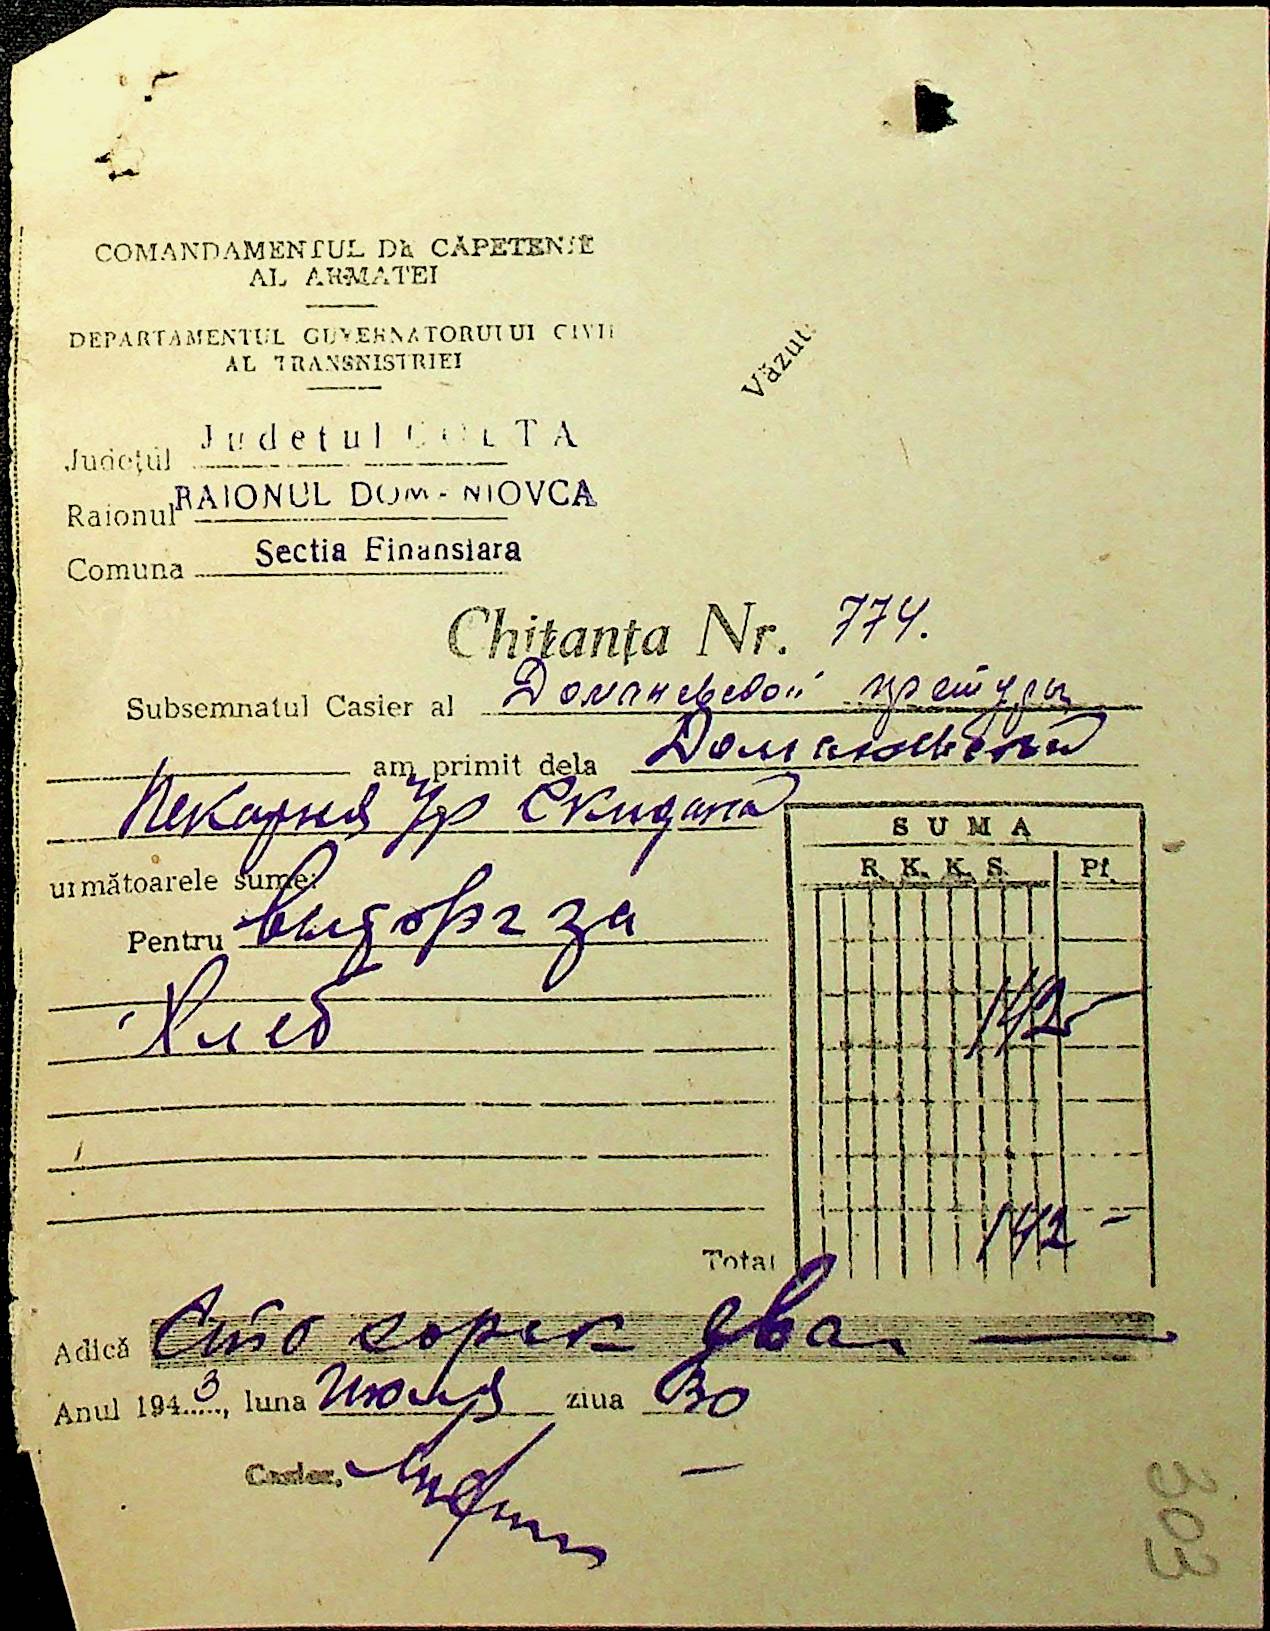 COMANDAMENTUL DE CĂPETENIE
AL ARMATEI
DEPARTAMENTUL GUVERNATORULUI CIVIL
AL TRANSNISTRIEI
Văzut:
Județul Judetul GOLTA
Raionul RAIONUL DOMANIOVCA
Comuna Sectia Finansiara
Chitanța Nr. 774.
Subsemnatul Casier al Доманевской претуры
am primit dela Доманевской
Пекарня
SUMA
R. K. K. S. Pf.
următoarele sume:
Pentru за
Хлеб
142 -
Total 142 -
Adică Сто сорок два.
Anul 1943, luna Июля ziua 30
Casier,
303